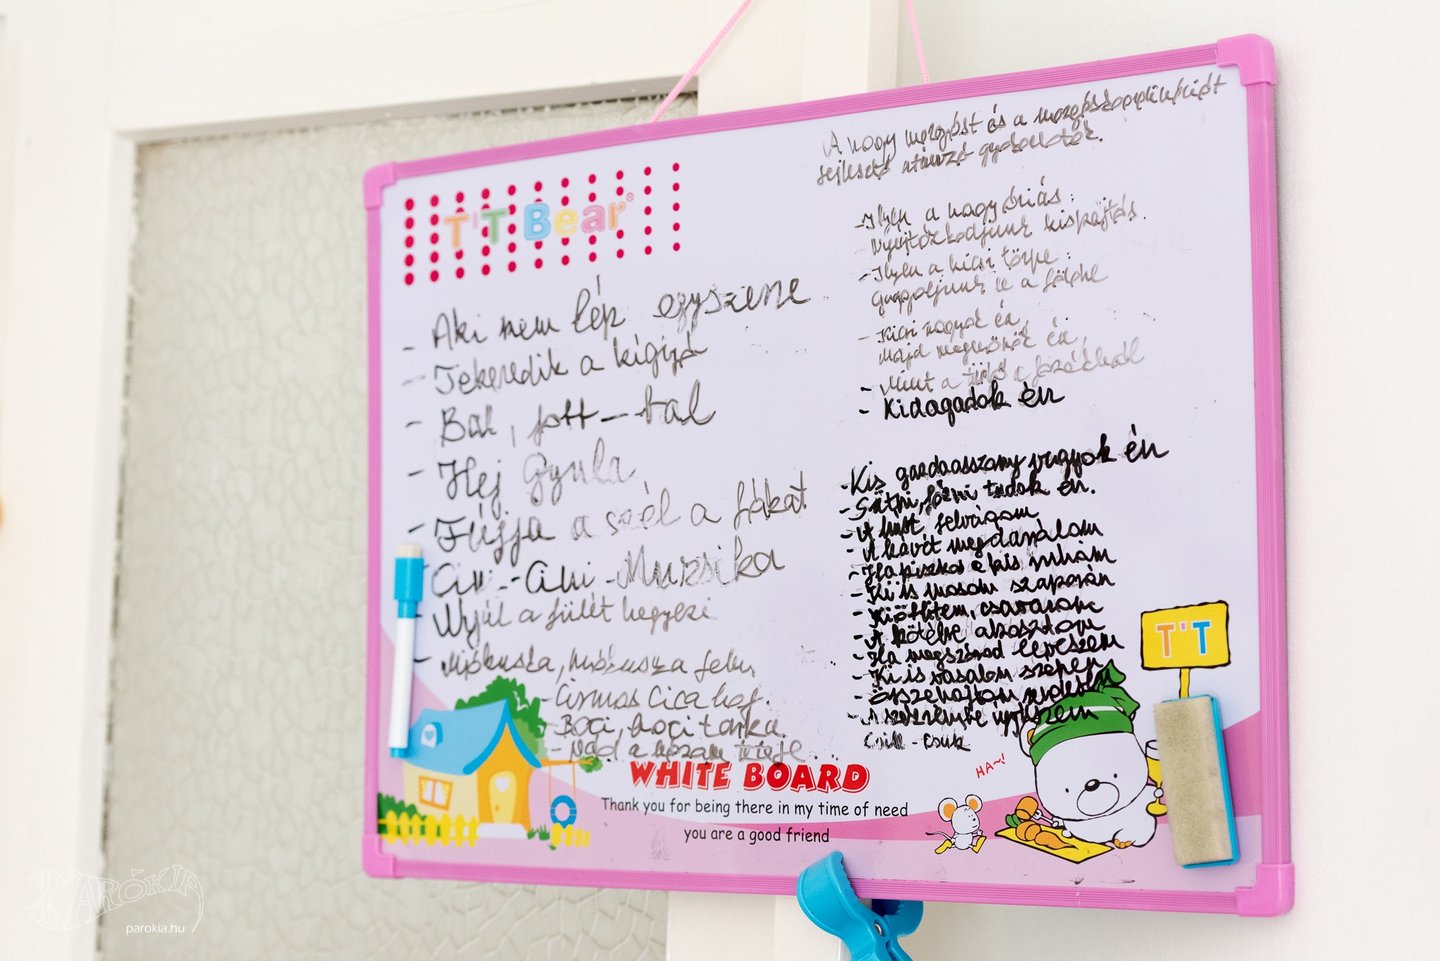 T'T Bear®
- Aki nem lép egyszerre
- Tekeredik a kígyó
- Bal, jobb - bal
- Hej Gyula
- Fújja a szél a fákat
Cin - Cini - Muzsika
- Nyúl a fülét hegyezi
- Mókuska, mókuska felm
- Cirmos Cica haj.
- Boci, boci tarka.
- Nád a házam teteje
A nagy mozgást és a mozgáskoordinációt
fejlesztő utánzó gyakorlatok.
- Ilyen a nagy óriás:
Nyújtózkodjunk kishajtás.
- Ilyen a kicsi törpe:
guggoljunk le a földre
- Kicsi vagyok én,
Majd megnövök én,
- Mint a tüdő a fazékból
- Kidagadok én
- Kis gazdaasszony vagyok én
- Sütni, főzni tudok én.
- A húst, felvágom
- A kávét megdarálom
- Ha piszkos a kis ruhám
- Ki is mosom szaporán
- Kiöblítem, csavarom
- A kötélre akasztom
- Ha megszárad leveszem
- Ki is vasalom szépen
- Összehajtom rendesen
- A szekrénybe
Csuk
HA~!
T'T
WHITE BOARD
Thank you for being there in my time of need
you are a good friend
PARÓKIA
parokia.hu